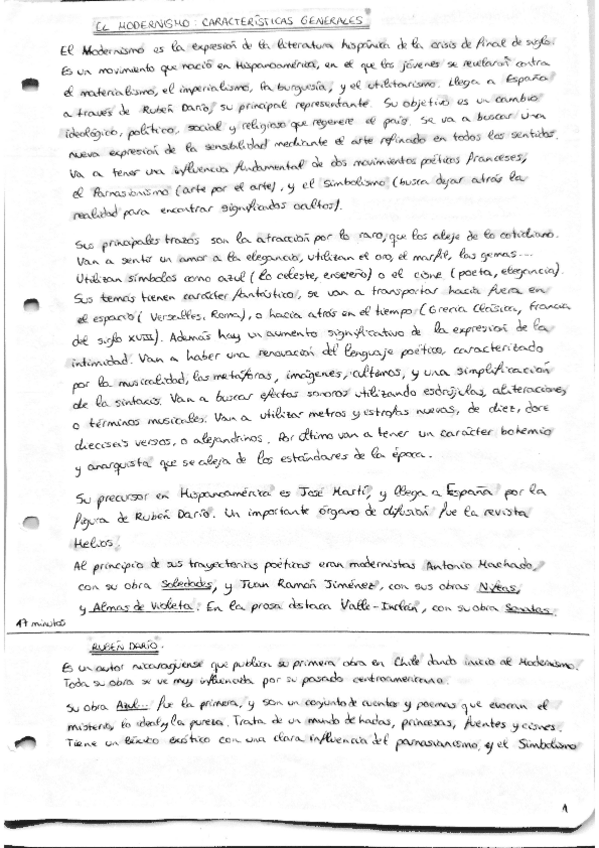 EL MODERNISMO: CARACTERÍSTICAS GENERALES
El Modernismo es la expresión de la literatura hispánica de la crisis de final de siglo.
Es un movimiento que nació en Hispanoamérica, en el que los jóvenes se revelaron contra
el materialismo, el imperialismo, la burguesía, y el utilitarismo. Llega a España
a través de Rubén Darío, su principal representante. Su objetivo es un cambio
ideológico, político, social y religioso que regenere el país. Se va a buscar una
nueva expresión de la sensibilidad mediante el arte refinado en todos los sentidos.
Va a tener una influencia fundamental de dos movimientos poéticos franceses,
el Parnasionismo (arte por el arte), y el Simbolismo (busca dejar atrás la
realidad para encontrar significados ocultos).
Sus principales trazos son la atracción por lo raro, que los aleje de lo cotidiano.
Van a sentir un amor a la elegancia, utilizan el oro, el marfil, las gemas...
Utilizan símbolos como azul (lo celeste, ensueño) o el cisne (poeta, elegancia).
Sus temas tienen carácter fantástico, se van a transportar hacia fuera en
el espacio (Versalles, Roma), o hacia atrás en el tiempo (Grecia Clásica, Francia
del siglo XVIII). Además hay un aumento significativo de la expresión de la
intimidad. Van a haber una renovación del lenguaje poético, caracterizado
por la musicalidad, las metáforas, imágenes, cultismos, y una simplificación
de la sintaxis. Van a buscar efectos sonoros utilizando esdrújulas, aliteraciones,
o términos musicales. Van a utilizar metros y estrofas nuevas, de diez, doce
dieciseis versos, o alejandrinos. Por último van a tener un carácter bohemio
y anarquista que se aleja de los estándares de la época.
Su precursor en Hispanoamérica es José Martí, y llega a España por la
figura de Rubén Darío. Un importante órgano de difusión fue la revista
Helios.
Al principio de sus trayectorias poéticas eran modernistas Antonio Machado,
con su obra Soledades, y Juan Ramón Jiménez, con sus obras Ninfeas,
y Almas de Violeta. En la prosa destaca Valle-Inclán, con su obra Sonatas.
17 minutos
RUBÉN DARÍO.
Es un autor nicaragüense que publica su primera obra en Chile dando inicio al Modernismo.
Toda su obra se ve muy influenciada por su pasado centroamericano.
Su obra Azul... fue la primera, y son un conjunto de cuentos y poemas que evocan el
misterio, lo ideal y la pureza. Trata de un mundo de hadas, princesas, fuentes y cisnes.
Tiene un léxico exótico con una clara influencia del parnasianismo, y el Simbolismo
1